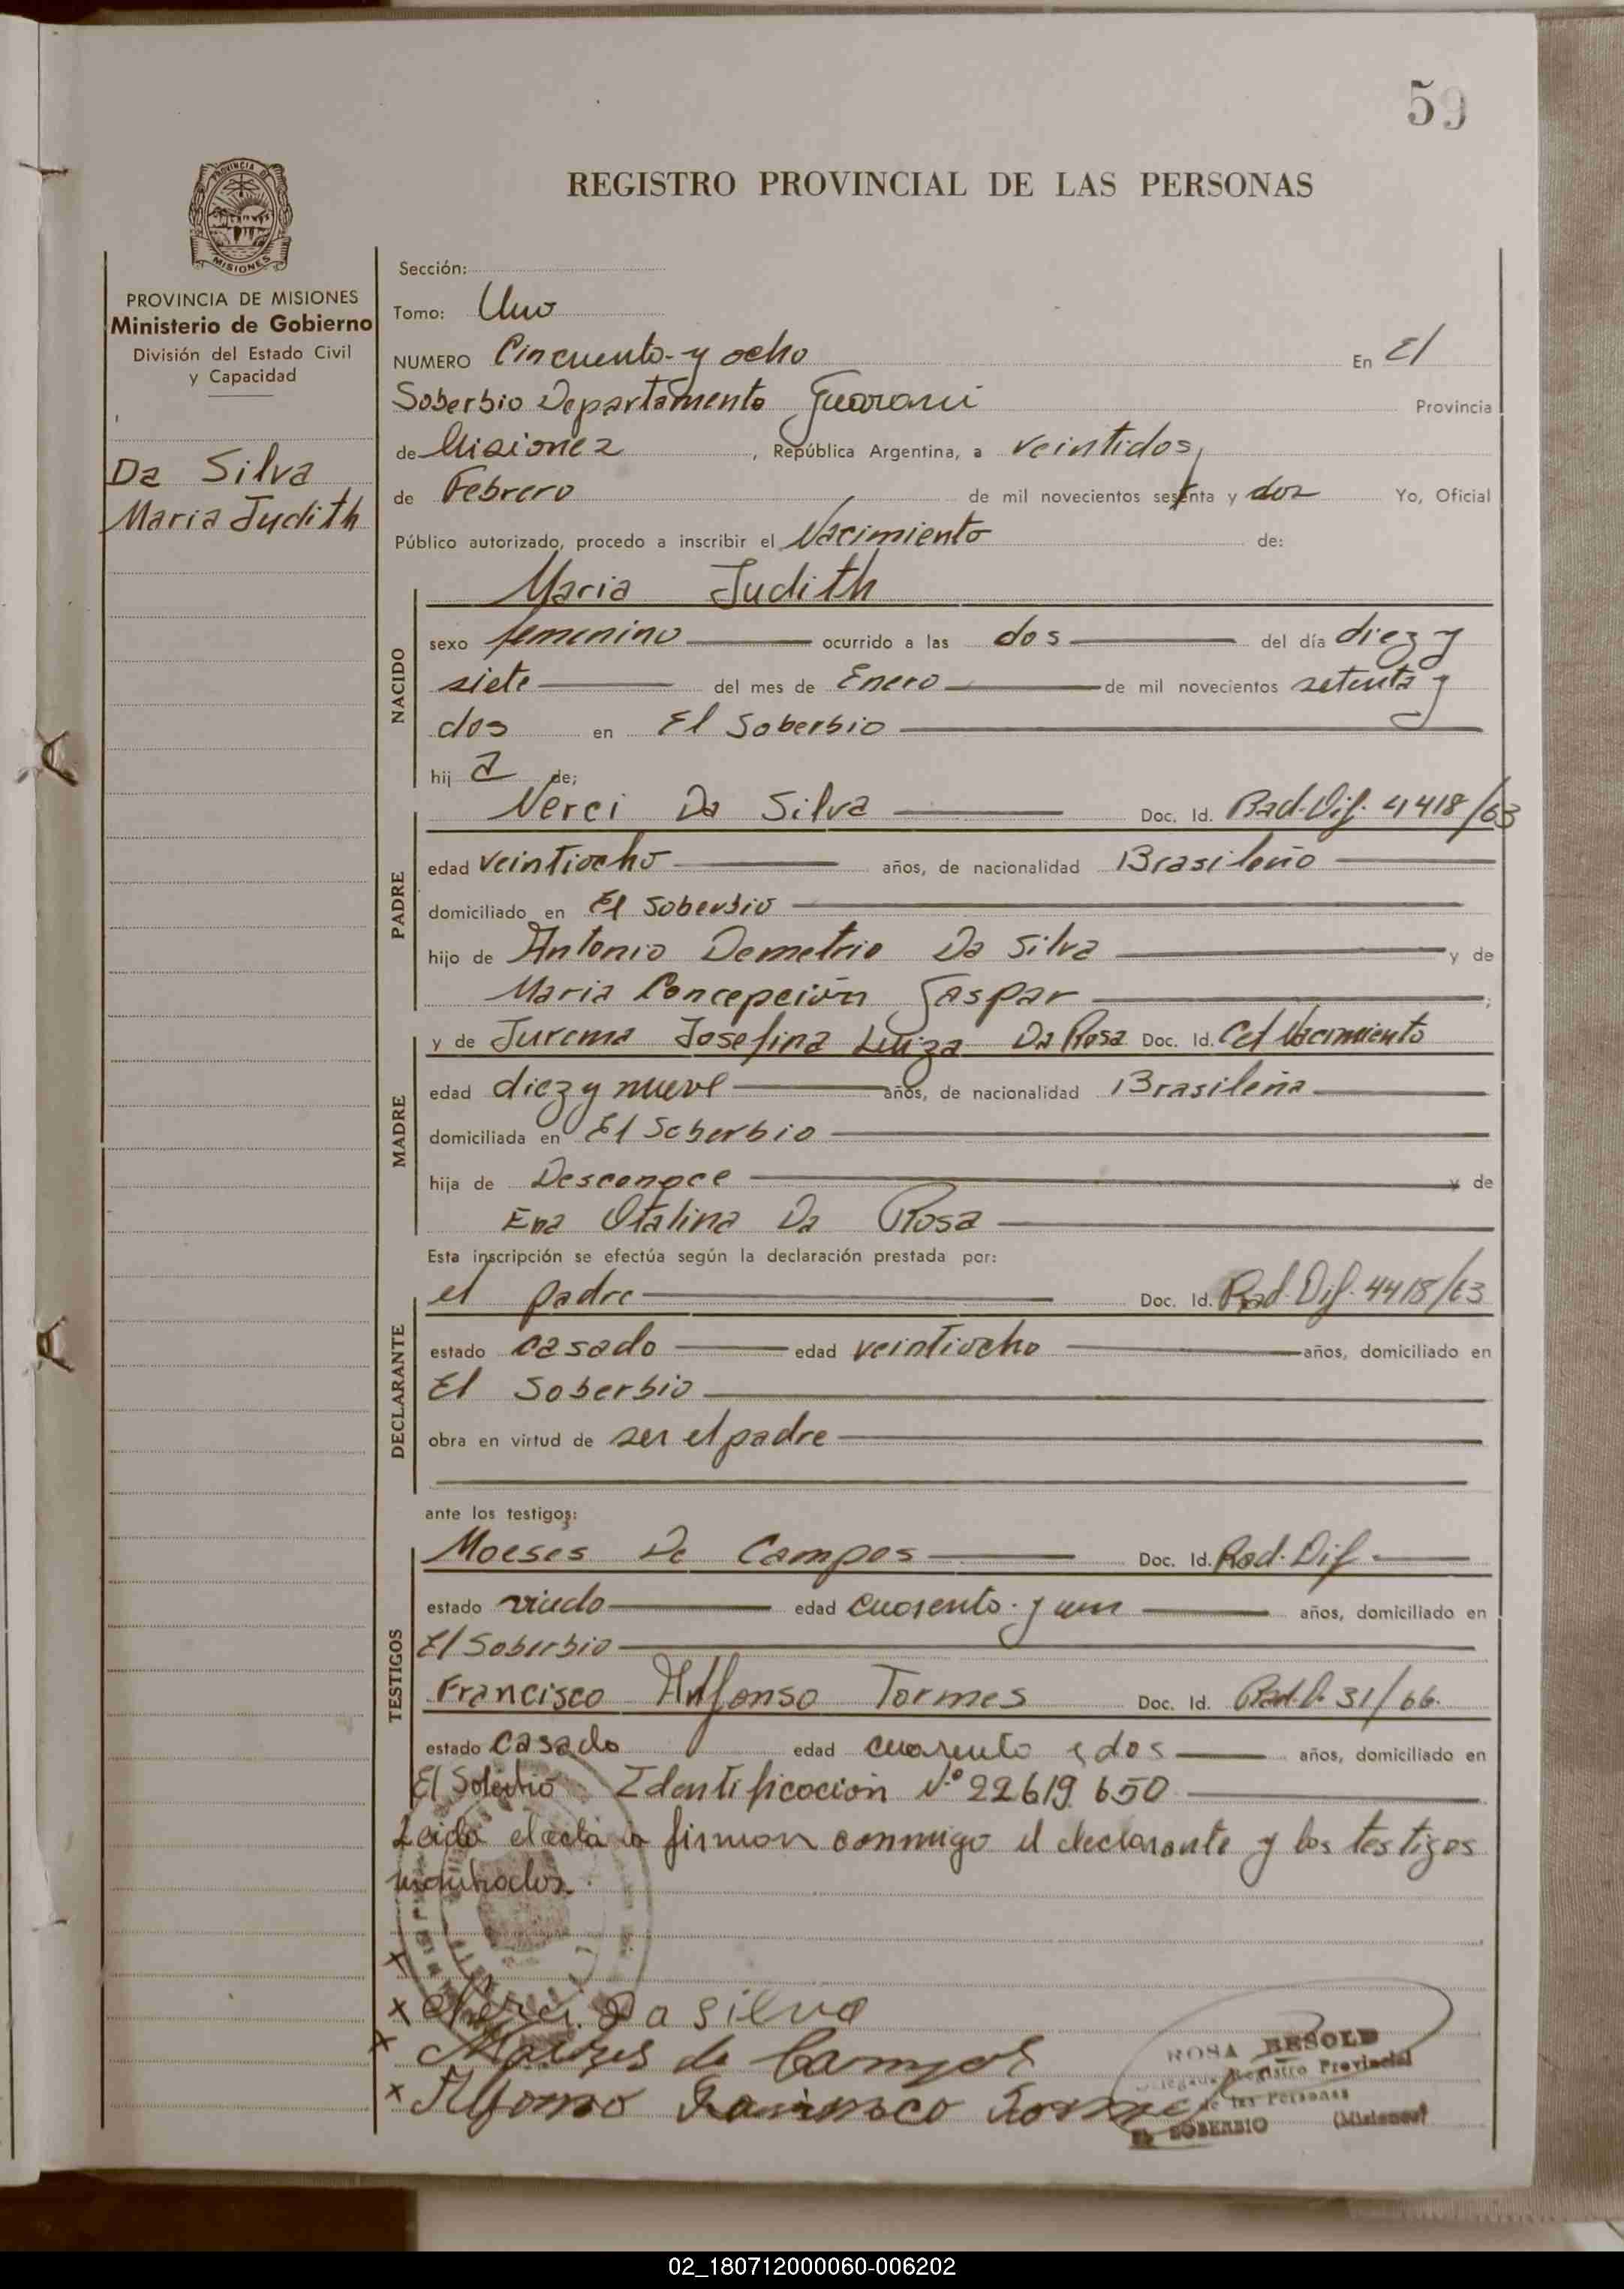 59
REGISTRO PROVINCIAL DE LAS PERSONAS
PROVINCIA DE MISIONES
PROVINCIA DE MISIONES
Ministerio de Gobierno
División del Estado Civil
y Capacidad
Da Silva
Maria Judith
Sección:
Tomo: Uno
NUMERO Cincuenta y ocho En El
Soberbio Departamento Guarani Provincia
de Misiones, República Argentina, a veintidos
de Febrero de mil novecientos sesenta y dos Yo, Oficial
Público autorizado, procedo a inscribir el Nacimiento de:
Maria Judith
NACIDO
sexo femenino ocurrido a las dos del día diez y
siete del mes de Enero de mil novecientos setenta y
dos en El Soberbio
hij a de;
PADRE
Nerci Da Silva Doc. Id. Rad. Dif. 4418/63
edad veintiocho años, de nacionalidad Brasileño
domiciliado en El Soberbio
hijo de Antonio Demetrio Da Silva y de
Maria Concepción Gaspar;
MADRE
y de Jurema Josefina Luiza Da Rosa Doc. Id. Cet Nacimiento
edad diez y nueve años, de nacionalidad Brasileña
domiciliada en El Soberbio
hija de Desconoce y de
Ena Otalina Da Rosa
Esta inscripción se efectúa según la declaración prestada por:
DECLARANTE
el padre Doc. Id. Rad. Dif. 4418/63
estado casado edad veintiocho años, domiciliado en
El Soberbio
obra en virtud de ser el padre
ante los testigos:
TESTIGOS
Moeses De Campos Doc. Id. Rad. Dif
estado viudo edad cuarenta y un años, domiciliado en
El Soberbio
Francisco Alfonso Tormes Doc. Id. Rad. D. 31/66.
estado casado edad cuarenta e dos años, domiciliado en
El Soberbio Identificación Nº 22619650
Leida el acta la firman conmigo el declarante y los testigos
nombrados.
x
x Nerci Da Silva
x Moizes de Campos
x Alfonso Francisco Tormes
ROSA BESOLD
Delegada Registro Provincial
de las Personas
EL SOBERBIO (Misiones)
02_180712000060-006202